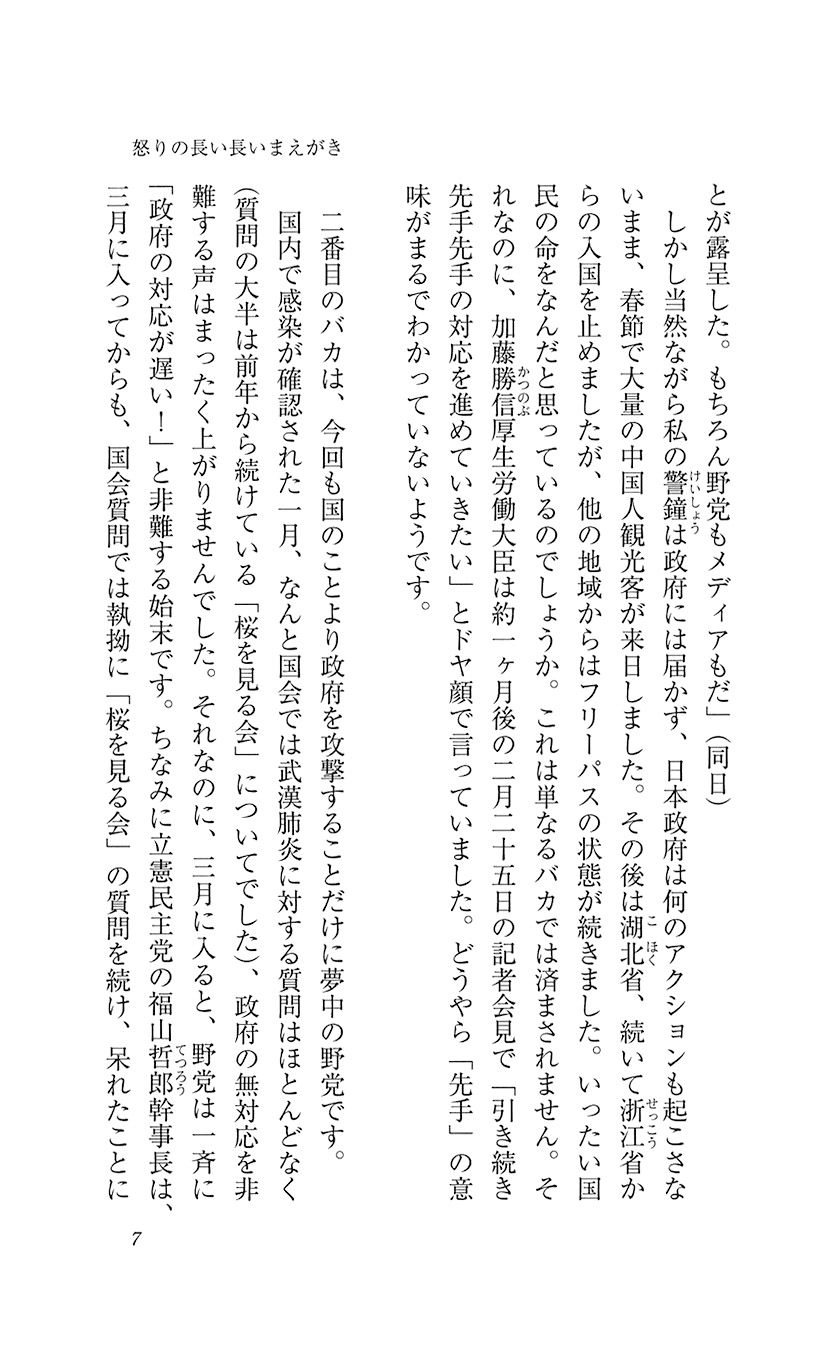 怒りの長い長いまえがき
とが露呈した。もちろん野党もメディアもだ」（同日）
しかし当然ながら私の警鐘は政府には届かず、日本政府は何のアクションも起こさな
いまま、春節で大量の中国人観光客が来日しました。その後は湖北省、続いて浙江省か
らの入国を止めましたが、他の地域からはフリーパスの状態が続きました。いったい国
民の命をなんだと思っているのでしょうか。これは単なるバカでは済まされません。そ
れなのに、加藤勝信厚生労働大臣は約一ヶ月後の二月二十五日の記者会見で「引き続き
先手先手の対応を進めていきたい」とドヤ顔で言っていました。どうやら「先手」の意
味がまるでわかっていないようです。
二番目のバカは、今回も国のことより政府を攻撃することだけに夢中の野党です。
国内で感染が確認された一月、なんと国会では武漢肺炎に対する質問はほとんどなく
（質問の大半は前年から続けている「桜を見る会」についてでした）、政府の無対応を非
難する声はまったく上がりませんでした。それなのに、三月に入ると、野党は一斉に
「政府の対応が遅い！」と非難する始末です。ちなみに立憲民主党の福山哲郎幹事長は、
三月に入ってからも、国会質問では執拗に「桜を見る会」の質問を続け、呆れたことに
7